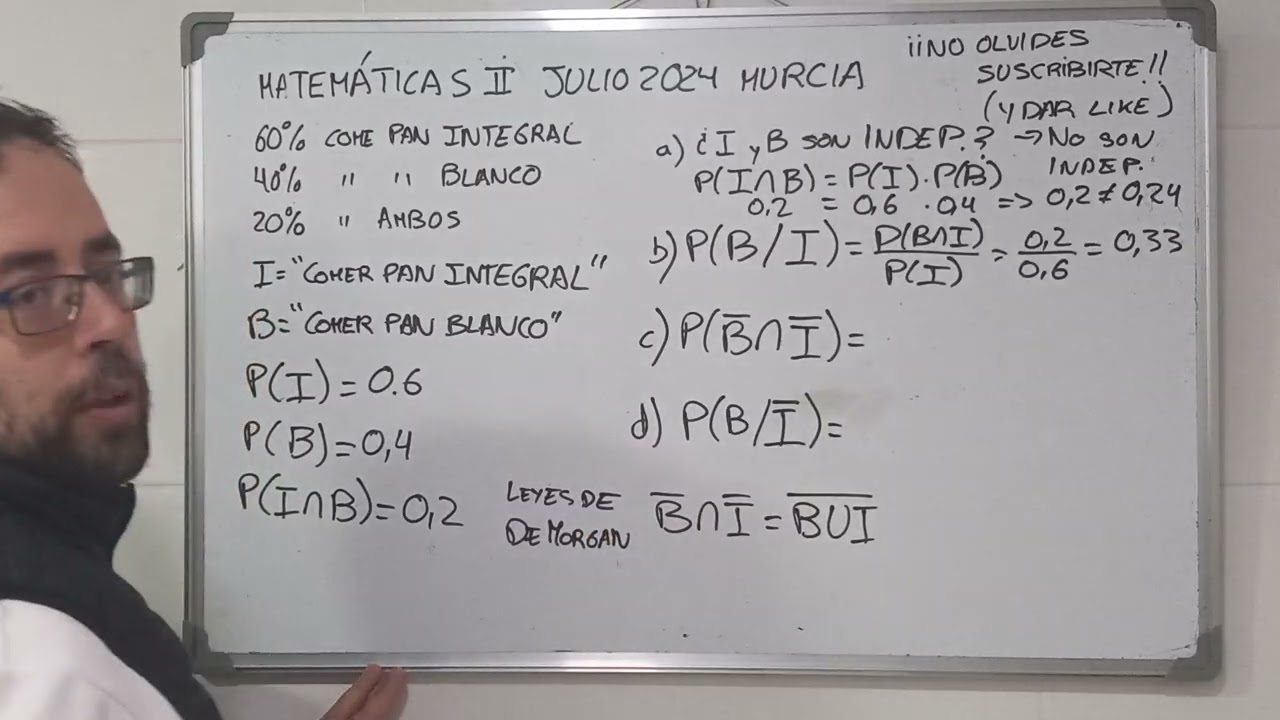 MATEMÁTICAS II JULIO 2024 MURCIA
¡¡NO OLVIDES
SUSCRIBIRTE!!
(Y DAR LIKE)
60% COME PAN INTEGRAL
40% " " BLANCO
20% " AMBOS
I="COMER PAN INTEGRAL"
B="COMER PAN BLANCO"
P(I)=0.6
P(B)=0,4
P(I∩B)=0,2
a) ¿I y B SON INDEP.? → NO SON
INDEP.
P(I∩B)=P(I)·P(B)
0,2 = 0,6 · 0,4 => 0,2≠0,24
b) P(B/I)=P(B∩I)/P(I) = 0,2/0,6 = 0,33
c) P(B̅∩I̅)=
d) P(B/I̅)=
LEYES DE
DE MORGAN
B̅∩I̅=B̅U̅I̅